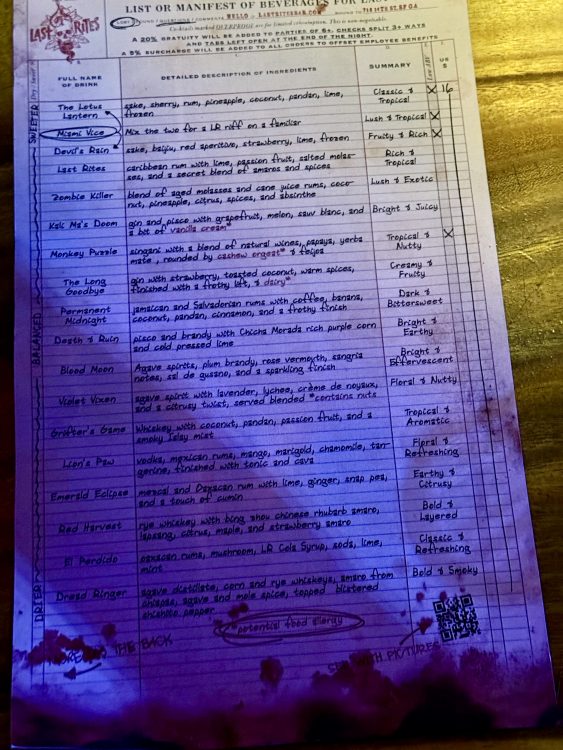 LIST OR MANIFEST OF BEVERAGES FOR LAST
LAST RITES
HELLO @ LASTRITESBAR.COM
718 14TH ST, SF CA
This is non-negotiable.
A 20% GRATUITY WILL BE ADDED TO PARTIES OF 6+, CHECKS SPLIT 3+ WAYS
AND TABS LEFT OPEN AT THE END OF THE NIGHT
A 5% SURCHARGE WILL BE ADDED TO ALL ORDERS TO OFFSET EMPLOYEE BENEFITS
FULL NAME OF DRINK
DETAILED DESCRIPTION OF INGREDIENTS
SUMMARY
Low ABV
US $
SWEETER
The Lotus Lantern
sake, sherry, rum, pineapple, coconut, pandan, lime,
frozen
Classic & Tropical
X
16
Miami Vice
Mix the two for a LR riff on a familiar
Lush & Tropical
X
Devil's Rain
sake, baiju, red aperitivo, strawberry, lime, frozen
Fruity & Rich
X
Last Rites
caribbean rum with lime, passion fruit, salted molas-
ses, and a secret blend of amaros and spices
Rich & Tropical
Zombie Killer
blend of aged molasses and cane juice rums, coco-
nut, pineapple, citrus, spices, and absinthe
Lush & Exotic
Kali Ma's Doom
gin and pisco with grapefruit, melon, sauv blanc, and
a bit of vanilla cream*
Bright & Juicy
Monkey Puzzle
singani with a blend of natural wines, papaya, yerba
mate, rounded by cashew orgeat* & feijoa
Tropical & Nutty
X
The Long Goodbye
gin with strawberry, toasted coconut, warm spices,
finished with a frothy lift, & dairy*
Creamy & Fruity
BALANCED
Permanent Midnight
jamaican and Salvadorian rums with coffee, banana,
coconut, pandan, cinnamon, and a frothy finish
Dark & Bittersweet
Death & Ruin
pisco and brandy with Chicha Morada rich purple corn
and cold pressed lime
Bright & Earthy
Blood Moon
Agave spirits, plum brandy, rose vermouth, sangria
notes, sal de gusano, and a sparkling finish
Bright & Effervescent
Violet Vixen
agave spirit with lavender, lychee, crème de noyaux,
and a citrusy twist, served blended *contains nuts
Floral & Nutty
Grifter's Game
Whiskey with coconut, pandan, passion fruit, and a
smoky Islay mist
Tropical & Aromatic
Lion's Paw
vodka, mexican rums, mango, marigold, chamomile, tan-
gerine, finished with tonic and cava
Floral & Refreshing
Emerald Eclipse
mezcal and Oaxacan rum with lime, ginger, snap pea,
and a touch of cumin
Earthy & Citrusy
Red Harvest
rye whiskey with bing shou chinese rhubarb amaro,
lapsang, citrus, maple, and strawberry amaro
Bold & Layered
El Perdido
oaxacan rums, mushroom, LR Cola Syrup, soda, lime,
mint
Classic & Refreshing
DRIER
Dread Ringer
agave distillate, corn and rye whiskeys, amaro from
chiapas, agave and mole spice, topped blistered
shishito pepper
Bold & Smoky
*potential food allergy
THE BACK
WITH PICTURES